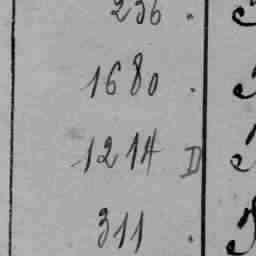 236 .
1680 .
1214 D
311 .